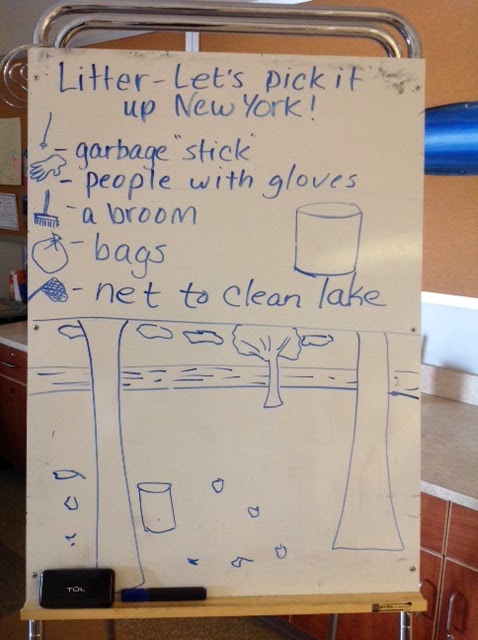 Litter-Let's pick it
up New York!
- garbage "stick"
- people with gloves
- a broom
- bags
- net to clean lake
TUL